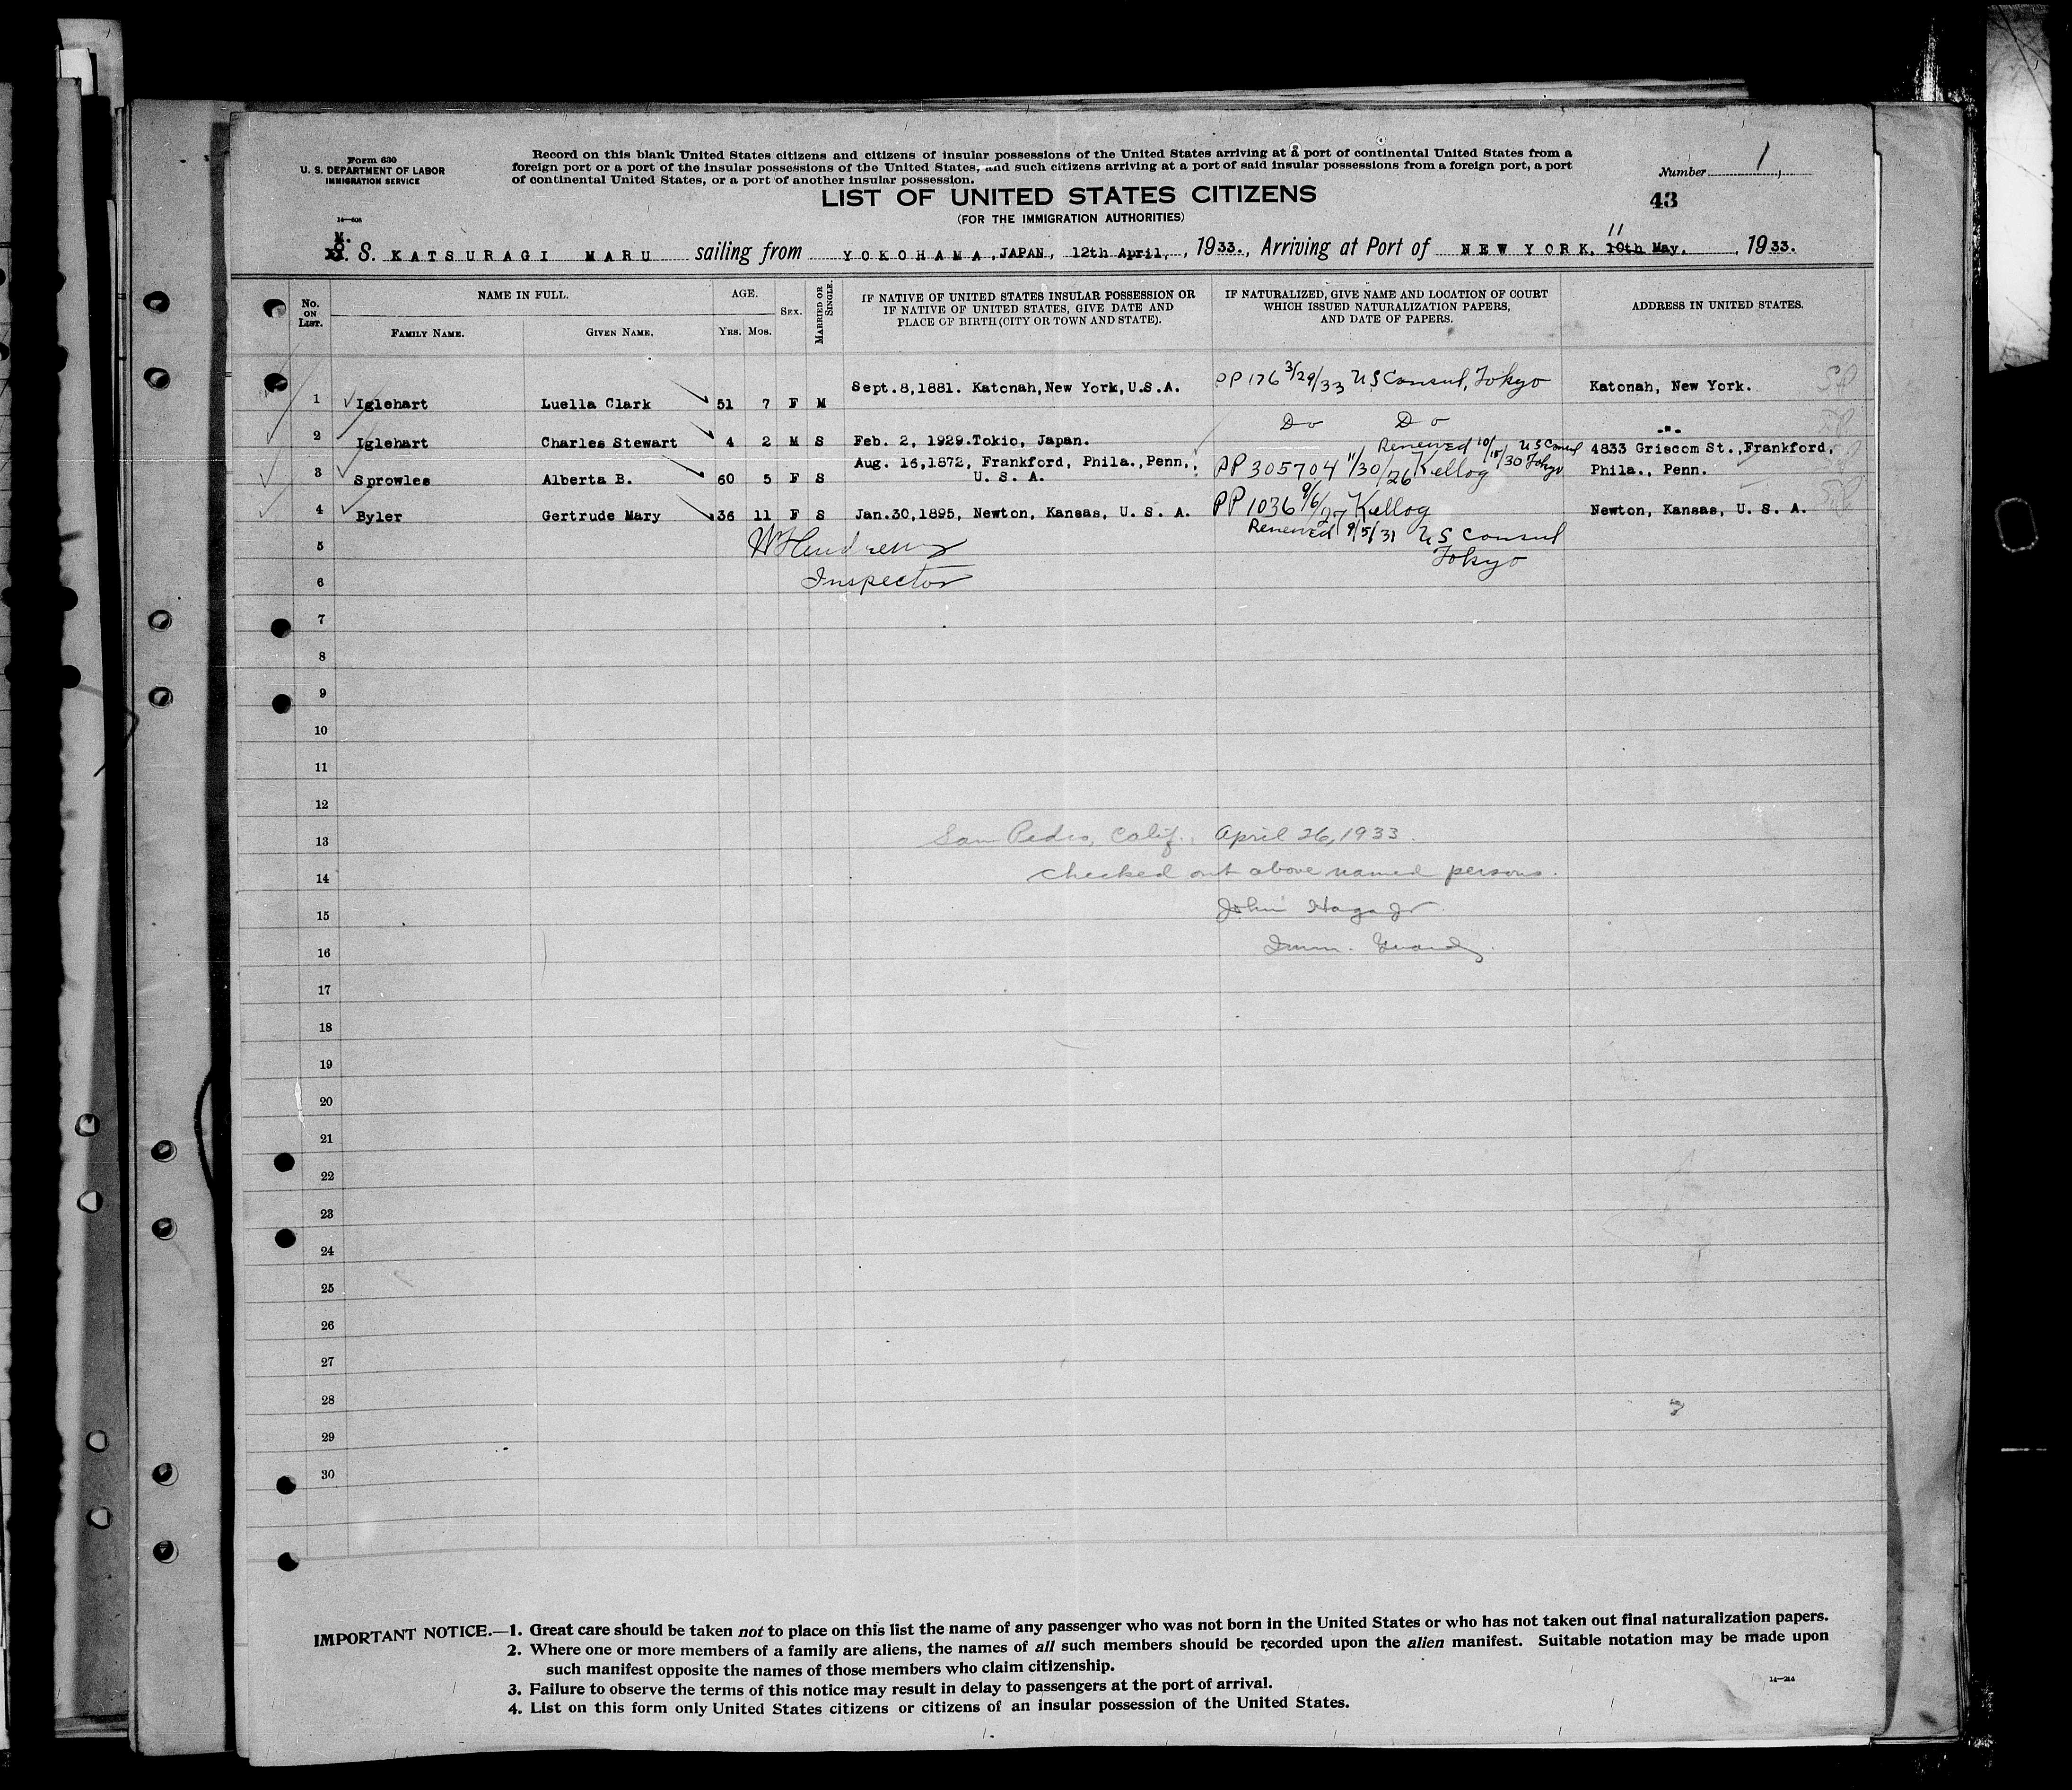 Form 630
U. S. DEPARTMENT OF LABOR
IMMIGRATION SERVICE
14—608
Record on this blank United States citizens and citizens of insular possessions of the United States arriving at a port of continental United States from a
foreign port or a port of the insular possessions of the United States, and such citizens arriving at a port of said insular possessions from a foreign port, a port
of continental United States, or a port of another insular possession.
Number 1
LIST OF UNITED STATES CITIZENS
43
(FOR THE IMMIGRATION AUTHORITIES)
M.
S. S. KATSURAGI MARU sailing from YOKOHAMA, JAPAN, 12th April, , 1933., Arriving at Port of NEW YORK, 11 10th May, , 1933.
No. ON LIST.
NAME IN FULL.
FAMILY NAME.
GIVEN NAME,
AGE.
YRS. MOS.
SEX.
MARRIED OR SINGLE.
IF NATIVE OF UNITED STATES INSULAR POSSESSION OR
IF NATIVE OF UNITED STATES, GIVE DATE AND
PLACE OF BIRTH (CITY OR TOWN AND STATE).
IF NATURALIZED, GIVE NAME AND LOCATION OF COURT
WHICH ISSUED NATURALIZATION PAPERS,
AND DATE OF PAPERS.
ADDRESS IN UNITED STATES.
1 Iglehart Luella Clark 51 7 F M Sept.8,1881. Katonah,New York,U.S.A. PP 176 3/29/33 US Consul, Tokyo Katonah, New York.
2 Iglehart Charles Stewart 4 2 M S Feb. 2, 1929.Tokio, Japan. Do Do -"-
Renewed 10/15/30 US Consul Tokyo
3 Sprowles Alberta B. 60 5 F S Aug. 16,1872, Frankford, Phila.,Penn,. U. S. A. PP 305704 11/30/26 Kellog 4833 Griscom St.,Frankford, Phila., Penn.
4 Byler Gertrude Mary 36 11 F S Jan.30,1895, Newton, Kansas, U. S. A. PP 1036 9/6/27 Kellog Newton, Kansas, U. S. A.
Renewed 9/5/31 US Consul
Tokyo
5
Inspector
6
7
8
9
10
11
12
13 San Pedro, Calif. April 26, 1933.
14 Checked out above named persons.
15 John Haga Jr
16 Imm. Guard
17
18
19
20
21
22
23
24
25
26
27
28
29
30
IMPORTANT NOTICE.—1. Great care should be taken not to place on this list the name of any passenger who was not born in the United States or who has not taken out final naturalization papers.
2. Where one or more members of a family are aliens, the names of all such members should be recorded upon the alien manifest. Suitable notation may be made upon
such manifest opposite the names of those members who claim citizenship.
3. Failure to observe the terms of this notice may result in delay to passengers at the port of arrival.
4. List on this form only United States citizens or citizens of an insular possession of the United States.
14—214